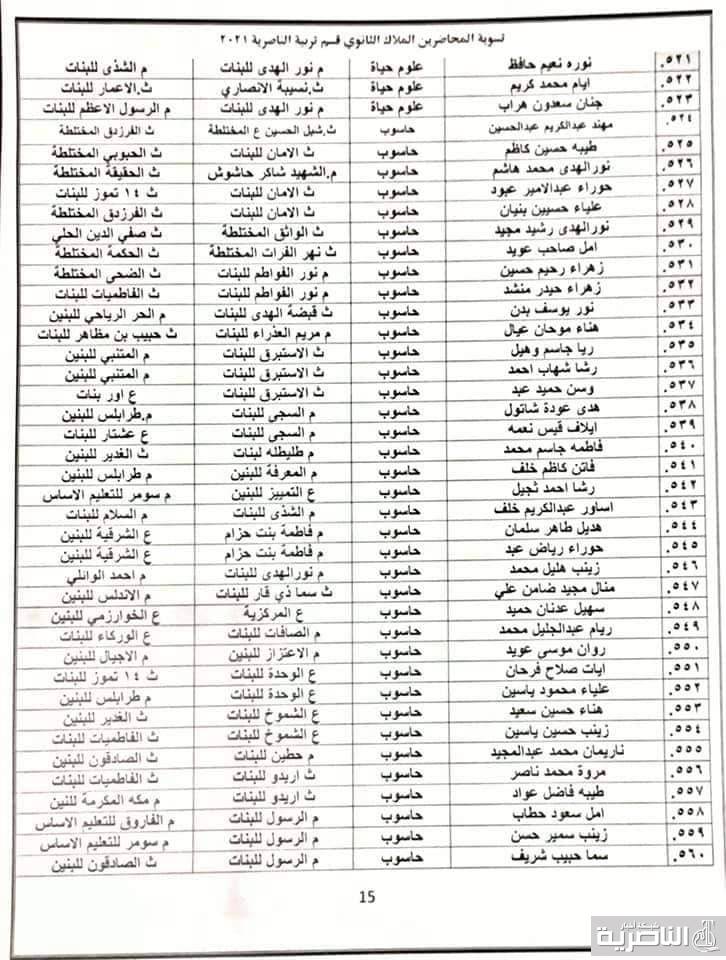 تسوية المحاضرين الملاك الثانوي قسم تربية الناصرية ٢٠٢١
٥٢١. نوره نعيم حافظ علوم حياة م نور الهدى للبنات م الشذى للبنات
٥٢٢. ايام محمد كريم علوم حياة ث.نسيبة الانصاري ث.الاعمار للبنات
٥٢٣. جنان سعدون هراب علوم حياة م نور الهدى للبنات م الرسول الاعظم للبنات
٥٢٤. مهند عبدالكريم عبدالحسين حاسوب ث.شبل الحسين ع المختلطة ث الفرزدق المختلطة
٥٢٥. طيبه حسين كاظم حاسوب ث الامان للبنات ث الحبوبي المختلطة
٥٢٦. نورالهدى محمد هاشم حاسوب م.الشهيد شاكر حاشوش ث الحقيقة المختلطة
٥٢٧. حوراء عبدالامير عبود حاسوب ث الامان للبنات ث ١٤ تموز للبنات
٥٢٨. علياء حسيين بنيان حاسوب ث الامان للبنات ث الفرزدق المختلطة
٥٢٩. نورالهدى رشيد مجيد حاسوب ث الواثق المختلطة ث صفي الدين الحلي
٥٣٠. امل صاحب عويد حاسوب ث نهر الفرات المختلطة ث الحكمة المختلطة
٥٣١. زهراء رحيم حسين حاسوب م نور الفواطم للبنات ث الضحى المختلطة
٥٣٢. زهراء حيدر منشد حاسوب م نور الفواطم للبنات ث الفاطميات للبنات
٥٣٣. نور يوسف بدن حاسوب ث قبضة الهدى للبنات م الحر الرياحي للبنين
٥٣٤. هناء موحان عيال حاسوب م مريم العذراء للبنات ث حبيب بن مظاهر للبنات
٥٣٥. ريا جاسم وهيل حاسوب ث الاستبرق للبنات م المتنبي للبنين
٥٣٦. رشا شهاب احمد حاسوب ث الاستبرق للبنات م المتنبي للبنين
٥٣٧. وسن حميد عبد حاسوب ث الاستبرق للبنات ع اور بنات
٥٣٨. هدى عودة شاتول حاسوب م السجى للبنات م.طرابلس للبنين
٥٣٩. ايلاف قيس نعمه حاسوب م السجى للبنات ع عشتار للبنات
٥٤٠. فاطمه جاسم محمد حاسوب م طليطله لبنات ث الغدير للبنين
٥٤١. فاتن كاظم خلف حاسوب م المعرفة للبنين م طرابلس للبنين
٥٤٢. رشا احمد ثجيل حاسوب ع التمييز للبنين م سومر للتعليم الاساس
٥٤٣. اساور عبدالكريم خلف حاسوب م الشذى للبنات م السلام للبنات
٥٤٤. هديل طاهر سلمان حاسوب م فاطمة بنت حزام ع الشرقية للبنين
٥٤٥. حوراء رياض عبد حاسوب م فاطمة بنت حزام ع الشرقية للبنين
٥٤٦. زينب هليل محمد حاسوب م نورالهدى للبنات م احمد الوائلي
٥٤٧. منال مجيد ضامن علي حاسوب ث سما ذي قار للبنات م الاندلس للبنين
٥٤٨. سهيل عدنان حميد حاسوب ع المركزية ع الخوارزمي للبنين
٥٤٩. ريام عبدالجليل محمد حاسوب م الصافات للبنات ع الوركاء للبنات
٥٥٠. روان موسى عويد حاسوب م الاعتزاز للبنين م الاجيال للبنين
٥٥١. ايات صلاح فرحان حاسوب ع الوحدة للبنات ث ١٤ تموز للبنات
٥٥٢. علياء محمود ياسين حاسوب ع الوحدة للبنات م طرابلس للبنين
٥٥٣. هناء حسين سعيد حاسوب ع الشموخ للبنات ث الغدير للبنين
٥٥٤. زينب حسين ياسين حاسوب ع الشموخ للبنات ث الفاطميات للبنات
٥٥٥. ناريمان محمد عبدالمجيد حاسوب م حطين للبنات ث الصادقون للبنين
٥٥٦. مروة محمد ناصر حاسوب ث اريدو للبنات ث الفاطميات للبنات
٥٥٧. طيبه فاضل عواد حاسوب ث اريدو للبنات م مكه المكرمة للنين
٥٥٨. امل سعود حطاب حاسوب م الرسول للبنات م الفاروق للتعليم الاساس
٥٥٩. زينب سمير حسن حاسوب م الرسول للبنات م سومر للتعليم الاساس
٥٦٠. سما حبيب شريف حاسوب م الرسول للبنات ث الصادقون للبنين
15
شبكة اخبار
الناصرية